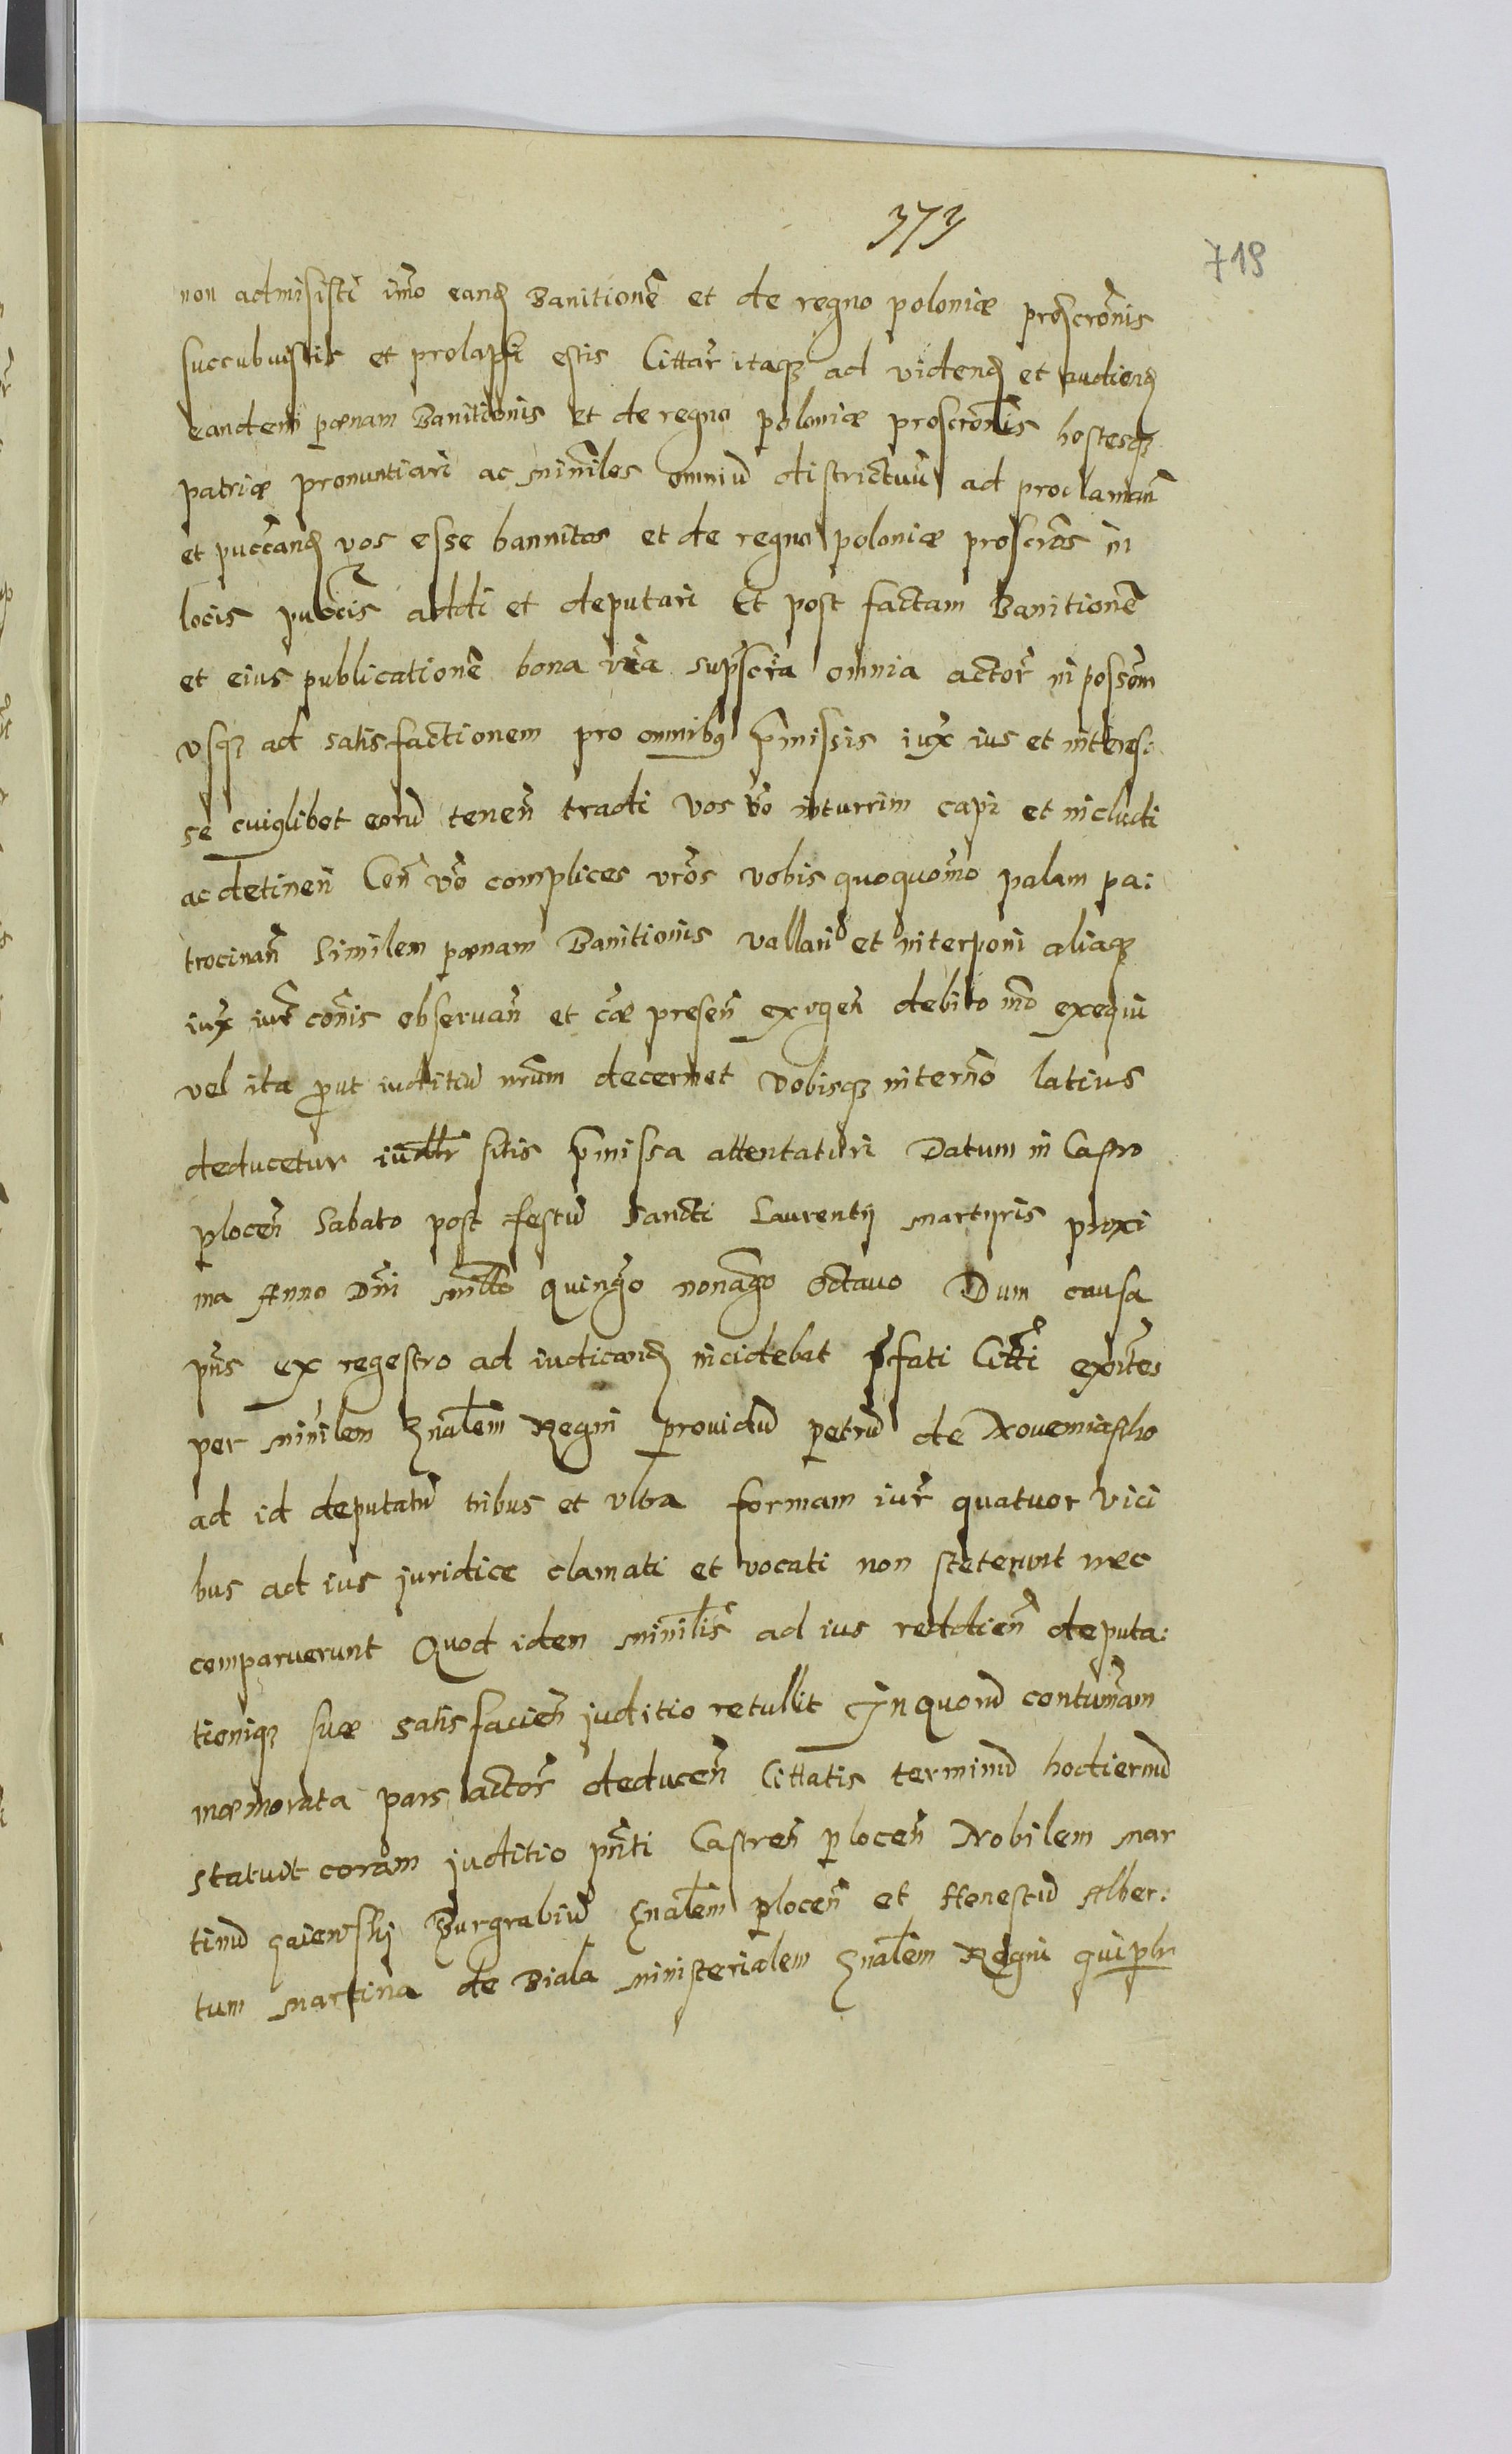 373
719
non admisisti imo eand Banitionē et de regno poloniæ proscrōnis
succubuistis et prolapsi estis Cittar itaqȝ ad vidend et audiend
eandem pœnam Banitionis et de regno poloniæ proscrōnis hostesqȝ
patriæ pronuntiari ac miniles omniū districtuū ad proclaman̄
et puccand vos esse bannitos et de regno poloniæ proscros in
locis pubcis addi et deputari Et post factam Banitionē
et eius publicationē bona vra supscra omnia actor in possom
vsqȝ ad satisfactionem pro omnibus pmissis iux ius et interes
se cuiuslibet eorū tenen tradi vos vo inturrim capi et includi
ac detineri Cen vo complices vros vobis quoquomo palam pa:
trocinan Similem pœnam Banitionis vallari et interponi aliaqȝ
iux iur conis obseruan et cæ presen exigen debito mo exequi
vel ita prout iuditiū nrum decernet vobisqȝ interno latius
deducetur iudlr sitis pmissa attentaturi Datum in Castro
plocen Sabato post festū Sancti Laurentij martyris proxi
ma Anno Dni millo quingo nonago Octauo Dum causa
pns ex regestro ad iudicand incidebat pfati Citti exntes
per minilem gnalem Regni prouidū petrū de Nouemiastho
ad id deputatū tribus et vltra formam iur quatuor vici
bus ad ius juridice clamati et vocati non steterunt nec
comparuerunt Quod idem minilis ad ius reddien deputa:
tioniqȝ suæ satisfacien juditio retullit In quorū contumam
mæmorata pars actor deducen Cittatis terminū hodiernū
statuit coram juditio pnti Castren plocen Nobilem Mar
tinū gaiewskj Burgrabiū gnalem plocen et Honestū Alber:
tum Martina de Biala ministerialem gnalem Regni qui plr